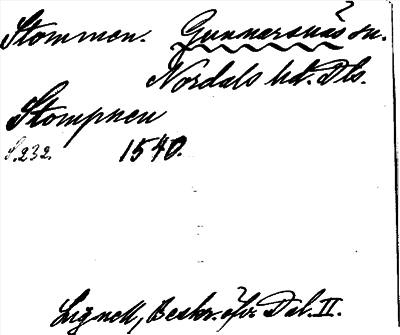 Stommen. Gunnarsnäs sn.
Nordals hd. Dls.
Stompnen
S. 232. 1540.
Lignell, Beskr. öfv. Dal. II.